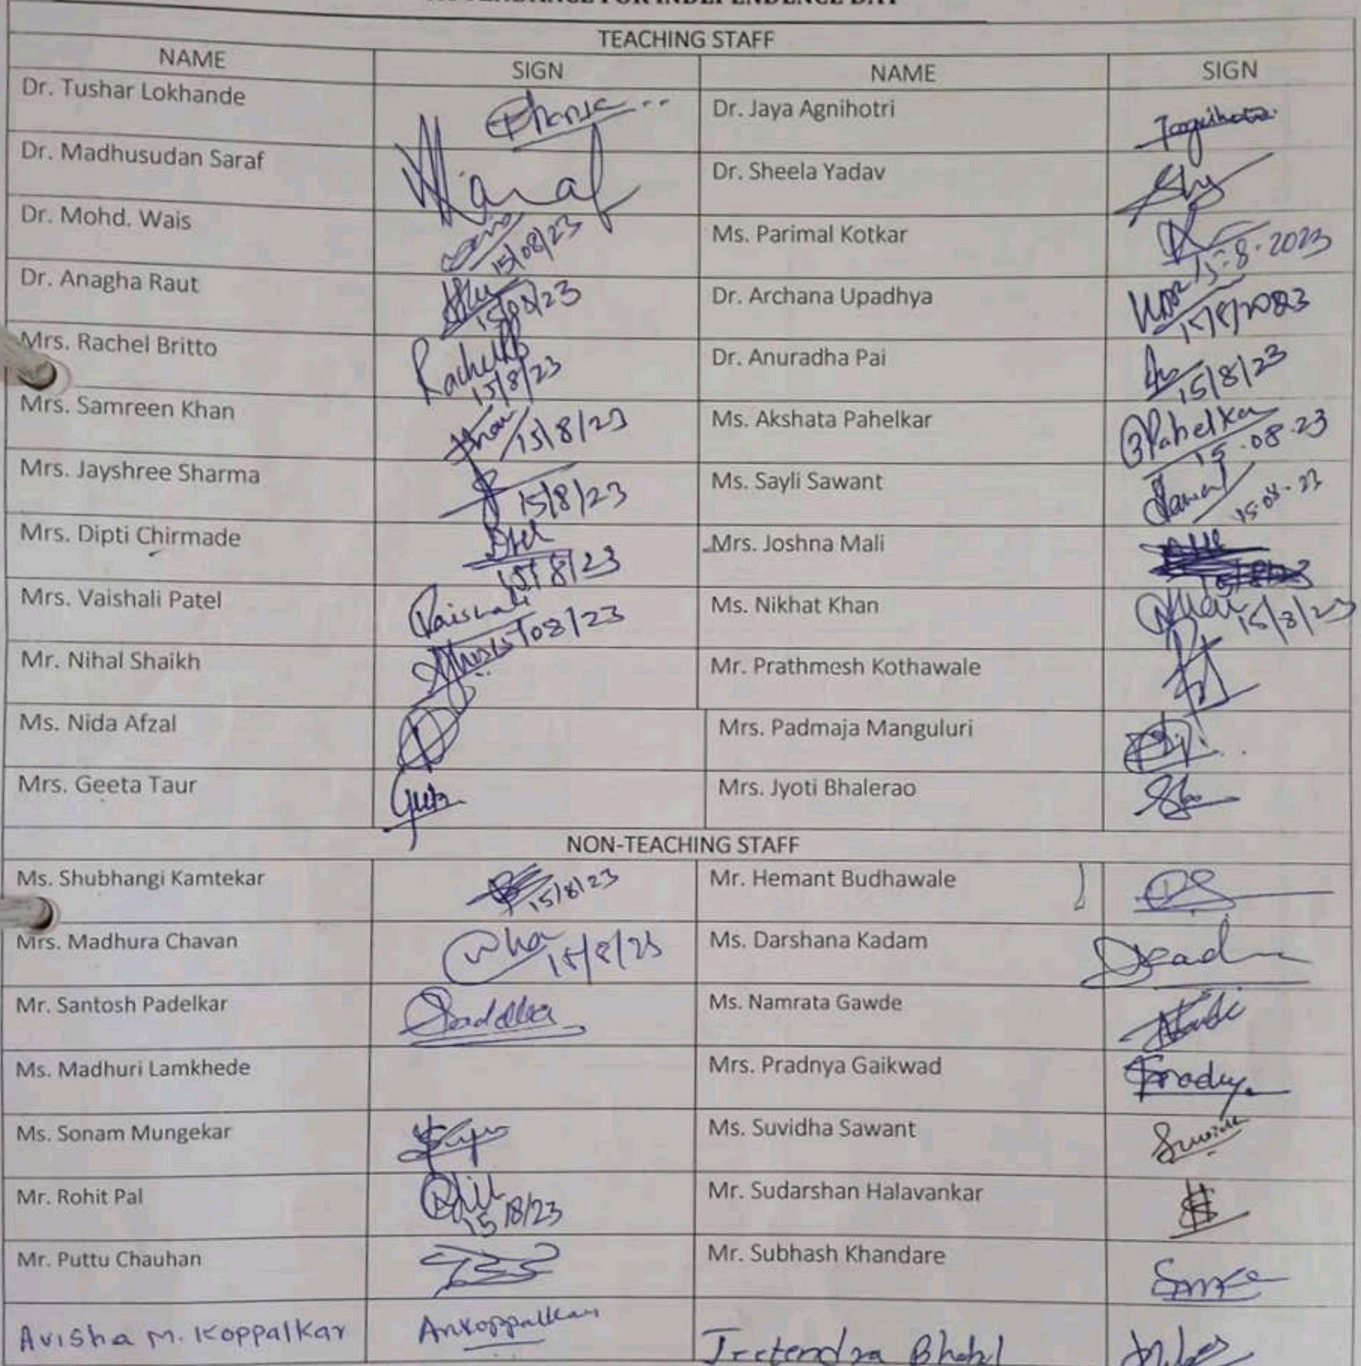 ATTENDANCE FOR INDEPENDENCE DAY
TEACHING STAFF
NAME SIGN NAME SIGN
Dr. Tushar Lokhande Dr. Jaya Agnihotri
Dr. Madhusudan Saraf Saraf Dr. Sheela Yadav
Dr. Mohd. Wais 15/08/23 Ms. Parimal Kotkar 15-8-2023
Dr. Anagha Raut 15/08/23 Dr. Archana Upadhya 15/8/2023
Mrs. Rachel Britto Rachel 15/8/23 Dr. Anuradha Pai 15/8/23
Mrs. Samreen Khan 15/8/23 Ms. Akshata Pahelkar Pahelkar 15.08.23
Mrs. Jayshree Sharma 15/8/23 Ms. Sayli Sawant 15.08.23
Mrs. Dipti Chirmade 15/8/23 Mrs. Joshna Mali 15/8/23
Mrs. Vaishali Patel Vaishali Ms. Nikhat Khan 15/8/23
Mr. Nihal Shaikh 15/08/23 Mr. Prathmesh Kothawale
Ms. Nida Afzal Mrs. Padmaja Manguluri
Mrs. Geeta Taur Mrs. Jyoti Bhalerao
NON-TEACHING STAFF
Ms. Shubhangi Kamtekar 15/8/23 Mr. Hemant Budhawale
Mrs. Madhura Chavan 15/8/23 Ms. Darshana Kadam
Mr. Santosh Padelkar Ms. Namrata Gawde
Ms. Madhuri Lamkhede Mrs. Pradnya Gaikwad
Ms. Sonam Mungekar Ms. Suvidha Sawant
Mr. Rohit Pal 15/8/23 Mr. Sudarshan Halavankar
Mr. Puttu Chauhan Mr. Subhash Khandare
Avisha M. Koppalkar AnKoppalkar Jeetendra